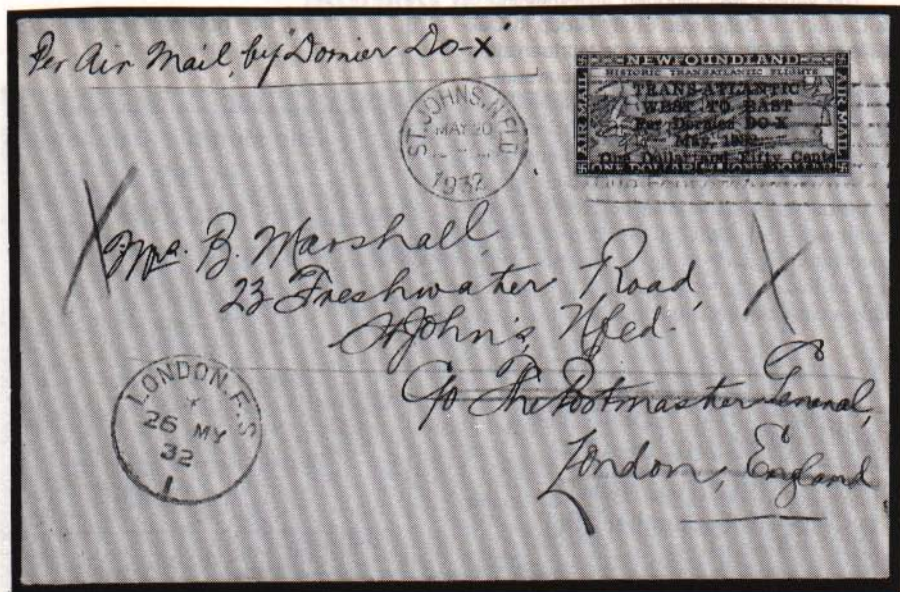 Per Air Mail, by "Dornier Do-X"
NEWFOUNDLAND
HISTORIC TRANSATLANTIC FLIGHTS
AIR MAIL
AIR MAIL
TRANS-ATLANTIC
WEST TO EAST
Per Dornier DO-X
May, 1932.
One Dollar and Fifty Cents
ONE DOLLAR
ONE DOLLAR
ST. JOHN'S, N'F'L'D
MAY 20
1932
Mrs. B. Marshall,
23 Freshwater Road,
St John's, Nfld.
C/o The Postmaster General,
London, England
LONDON. F. S
26 MY
32